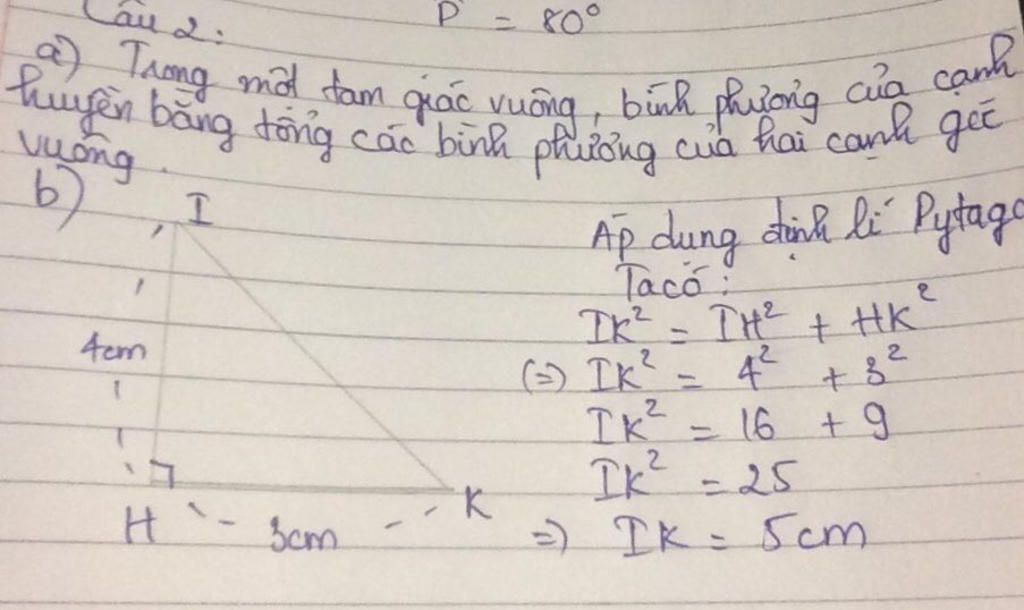 Câu 2: P = 80°
a) Trong một tam giác vuông, bình phương của cạnh
huyền bằng tổng các bình phương của hai cạnh góc
vuông.
b)
I
Áp dụng định lí Pytago
Ta có:
IK² = IH² + HK²
4cm
(=) IK² = 4² + 3²
IK² = 16 + 9
IK² = 25
H 3cm K
=) IK = 5cm